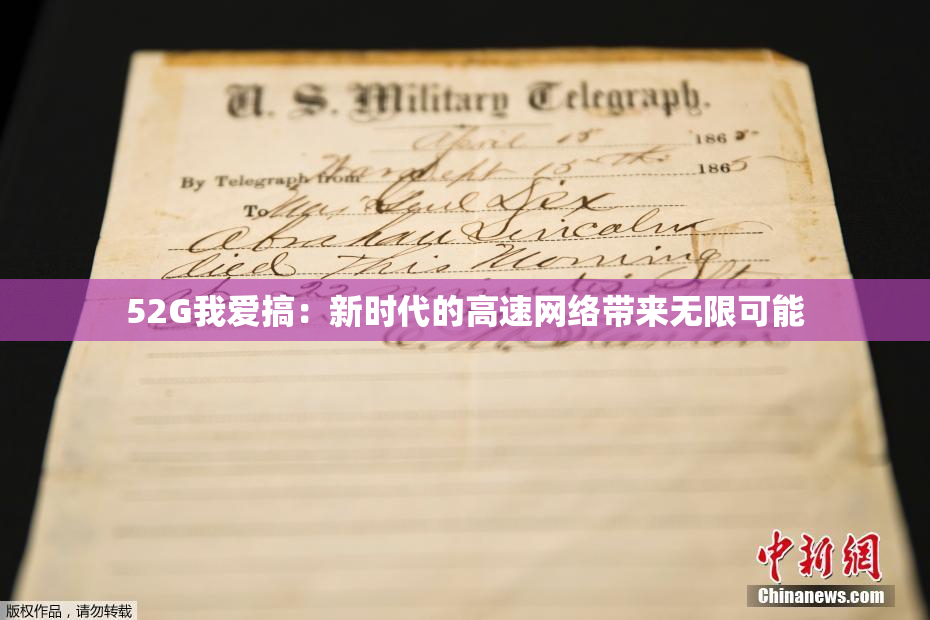 U. S. Military Telegraph.
April 15 1865
By Telegraph from War Dept 15th 1865
To Maj Genl Dix
Abraham Lincoln
died This Morning
22 minutes after
52G我爱搞：新时代的高速网络带来无限可能
E. M. Stanton
中新网
Chinanews.com
版权作品，请勿转载